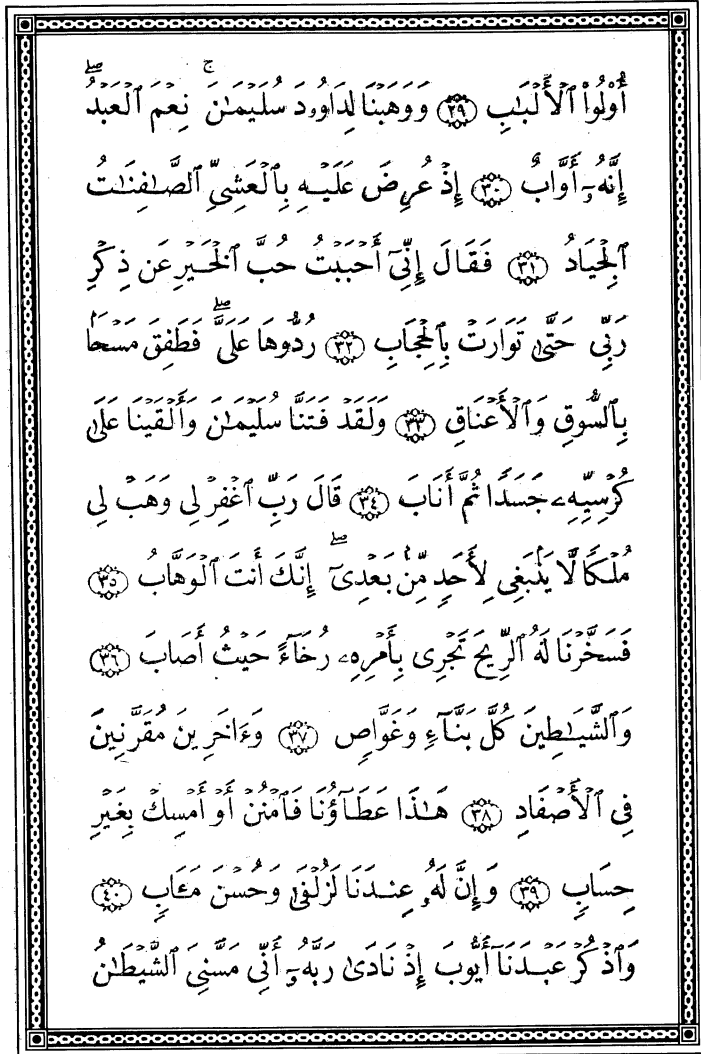 أُوْلُواْ ٱلْأَلْبَٰبِ ٢٩ وَوَهَبْنَا لِدَاوُۥدَ سُلَيْمَٰنَۚ نِعْمَ ٱلْعَبْدُۖ
إِنَّهُۥٓ أَوَّابٌ ٣٠ إِذْ عُرِضَ عَلَيْهِ بِٱلْعَشِىِّ ٱلصَّٰفِنَٰتُ
ٱلْجِيَادُ ٣١ فَقَالَ إِنِّىٓ أَحْبَبْتُ حُبَّ ٱلْخَيْرِ عَن ذِكْرِ
رَبِّى حَتَّىٰ تَوَارَتْ بِٱلْحِجَابِ ٣٢ رُدُّوهَا عَلَىَّۖ فَطَفِقَ مَسْحًۢا
بِٱلسُّوقِ وَٱلْأَعْنَاقِ ٣٣ وَلَقَدْ فَتَنَّا سُلَيْمَٰنَ وَأَلْقَيْنَا عَلَىٰ
كُرْسِيِّهِۦ جَسَدًا ثُمَّ أَنَابَ ٣٤ قَالَ رَبِّ ٱغْفِرْ لِى وَهَبْ لِى
مُلْكًا لَّا يَنۢبَغِى لِأَحَدٍ مِّنۢ بَعْدِىٓۖ إِنَّكَ أَنتَ ٱلْوَهَّابُ ٣٥
فَسَخَّرْنَا لَهُ ٱلرِّيحَ تَجْرِى بِأَمْرِهِۦ رُخَآءً حَيْثُ أَصَابَ ٣٦
وَٱلشَّيَٰطِينَ كُلَّ بَنَّآءٍ وَغَوَّاصٍ ٣٧ وَءَاخَرِينَ مُقَرَّنِينَ
فِى ٱلْأَصْفَادِ ٣٨ هَٰذَا عَطَآؤُنَا فَٱمْنُنْ أَوْ أَمْسِكْ بِغَيْرِ
حِسَابٍ ٣٩ وَإِنَّ لَهُۥ عِندَنَا لَزُلْفَىٰ وَحُسْنَ مَـَٔابٍ ٤٠
وَٱذْكُرْ عَبْدَنَآ أَيُّوبَ إِذْ نَادَىٰ رَبَّهُۥٓ أَنِّى مَسَّنِىَ ٱلشَّيْطَٰنُ